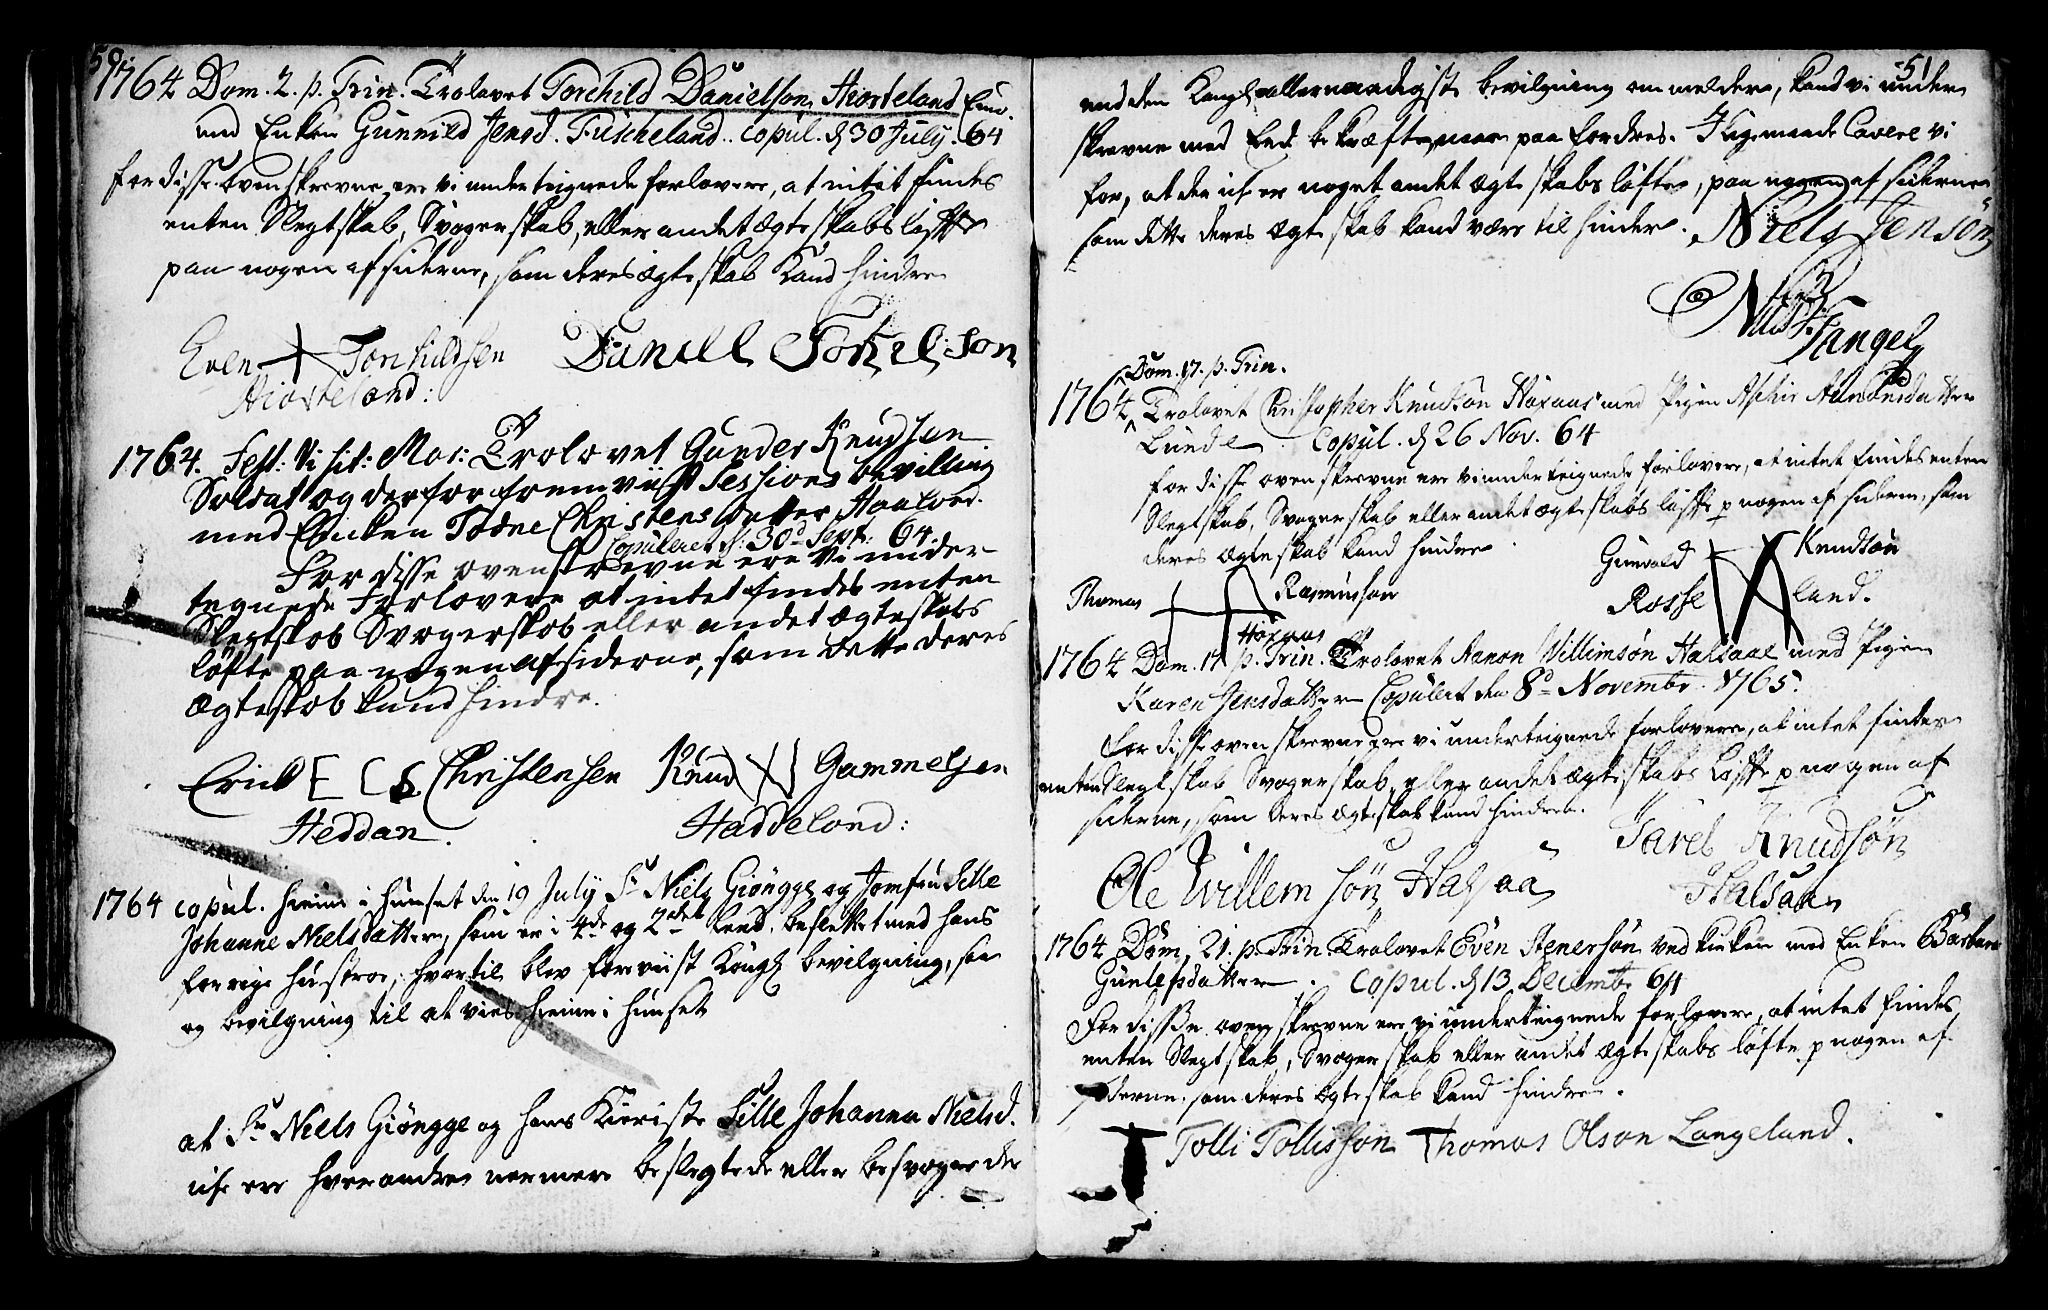 50.
1764 Dom. 2. p. Trin. Trolovet Torchild Danielson, Hiorteland
med Enken Gunnild Jensd. Fuscheland.. copul. d 30 July. 64
for disse ovenskrevne ere vi underteignede forlovere, at intet findes
enten Slegtskab, Svogerskab, eller andet ægteskabs løffte
paa nogen af siderne, som deres ægteskab kand hindre
Even Torkildsen Daniell Torkelson
Hiorteland:
1764. Fest: Visit: Mar: Trolovet Gunder Knudsen
Soldat og derfor fremviist Sessions bevilling
med Enken Todne Christensdatter Haaland.
Copuleret d: 30d Sept: 64.
For disse ovenskrevne ere Vi under
tegnede Forlovere at intet findes enten
Slegtskob Svogerskob eller andet ægteskobs
løfte paa nogen af siderne, som dette deres
ægteskob kand hindre.
Erick E C S Christensen Knud Gammelsen
Heddan. Haddeland:
1764 copul. hieme i huuset den 19 July Sr Niels Giøngge og Jomfru Sille
Johanne Nielsdatter, som er i 4de og 2det Leed. beslegtet med hans
forrige hustroe, hvortil blev foreviist Kongl bevilgning, saa
og bevilgning til at vies hieme i huuset
at Sr Niels Giøngge og hans Kieriste Sille Johanna Nielsd.
icke ere hverandre nermere beslegtede eller besvogrede
51
end den Kongl allernaadigste bevilgning om melder, kand vi under
skrevne med Eed bekræfte, naar paa fordres. I ligemaade Cavere vi
for, at der icke er noget andet ægteskabs løfte, paa nogen af siderne
som dette deres ægteskab kand være til hinder. Niels Jensøn
Tangel
Dom. 17. p. Trin.
1764 Trolovet Christopher Knudsøn Høxaas med Pigen Aamundsdatter
Lunde copul. d 26 Nov. 64
for disse ovenskrevne ere vi underteignede forlovere, at intet findes enten
Slegtskab, Svogerskab eller andet ægteskabs løffte p nogen af siderne, som
deres ægteskab kand hindre.
Thomas Rasmusson Gunvald Knudsøn
Høxaas Rosseland.
1764 Dom. 17 p. Trin. Trolovet Aanon Willimsøn Halsaae med Pigen
Karen Jensdatter Copulert den 8de Novembr. 1765.
for disse ovenskrevne ere vi underteignede forlovere, at intet findes
enten Slegtskab Svogerskab, eller andet ægteskabs Løffte p nogen af
siderne, som deres ægteskab kand hindre.
Ole Willemsøn Halsaa Jareb Knudsøn
Halsaae
1764 Dom. 21. p. Trin. Trolovet Even Stenersøn ved kirken med Enken Barbara
Gunlefsdatter. copul. d 13 Decembr 64
for disse ovenskrevne ere vi underteignede forlovere, at intet findes
enten Slegtskab, Svogerskab eller andet ægteskabs løfte p nogen af
siderne, som deres ægteskab kand hindre.
Tolli Tollisson Thomas Olson Langeland.